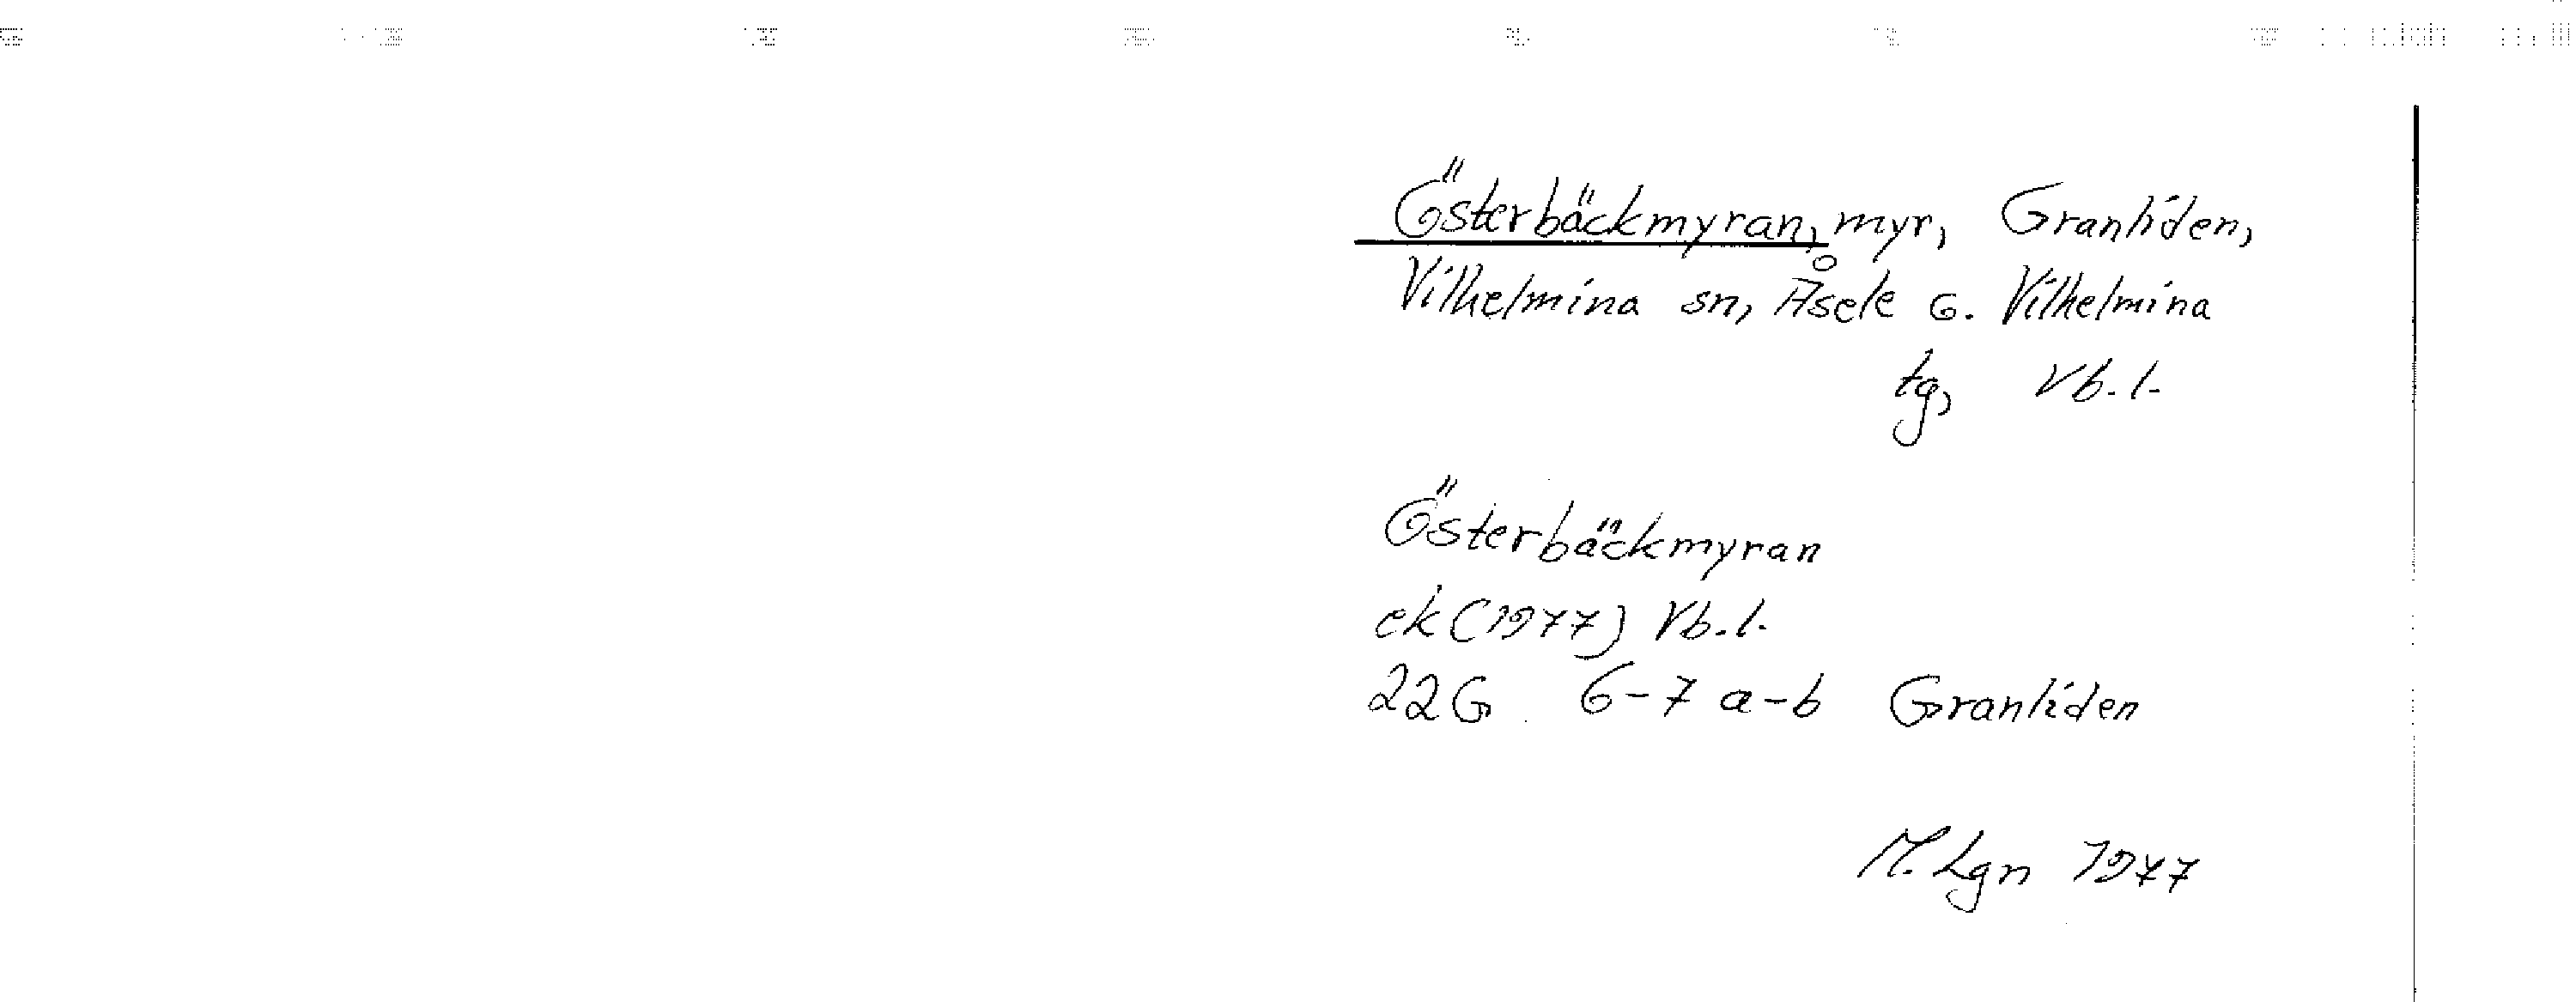 Österbäckmyran, myr, Granliden,
Vilhelmina sn, Åsele o. Vilhelmina
tg, Vb. l.
Österbäckmyran
ek (1977) Vb. l.
22G 6-7 a-b Granliden
M. Lgn 1977